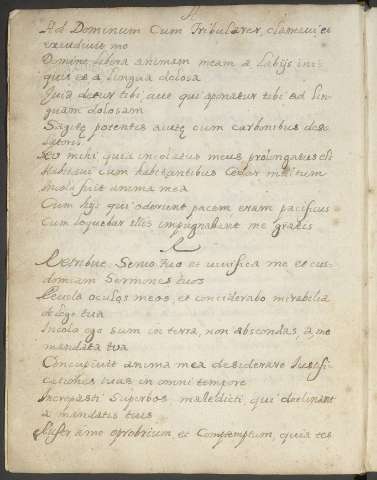 Ad Dominum Cum Tribularer, clamavi, et
exaudivit me
Domine, libera animam meam a Labijs ini
quis et a lingua dolosa
Quid detur tibi, aut qui aponatur tibi ad lin
guam dolosam
Sagitę potentes autę cum carbonibus deso
latoris
Heo mihi quia incolatus meus prolongatus est
Habitavi cum habitantibus Cedar multum
incola fuit anima mea
Cum hijs qui oderunt pacem eram pacificus
cum loquebar illis impugnabant me gratis
Retribue Servo tuo et vivifica me et cus
todiam Sermones tuos
Revela oculos meos, et considerabo mirabilia
de lege tua
Incola ego sum in terra, non abscondas, a me
mandata tua
Concupivit anima mea desiderare Justifi
cationes tuas in omni tempore
Increpasti Superbos maledicti, qui declinant
a mandatis tuis
Aufer a me oprobrium, et Comptemptum, quia tes